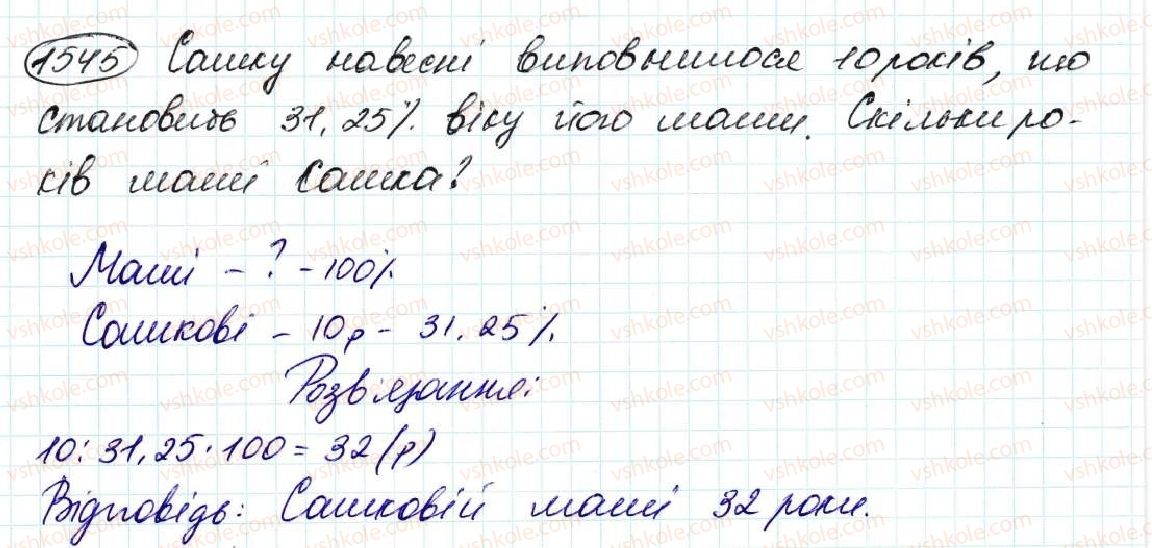 1545 Сашку навесні виповнилося 10 років, що
становить 31,25% віку його мами. Скільки ро-
ків мамі Сашка?
Мамі - ? - 100%
Сашкові - 10р - 31,25%
Розв'язання:
10:31,25·100=32(р)
Відповідь: Сашковій мамі 32 роки.